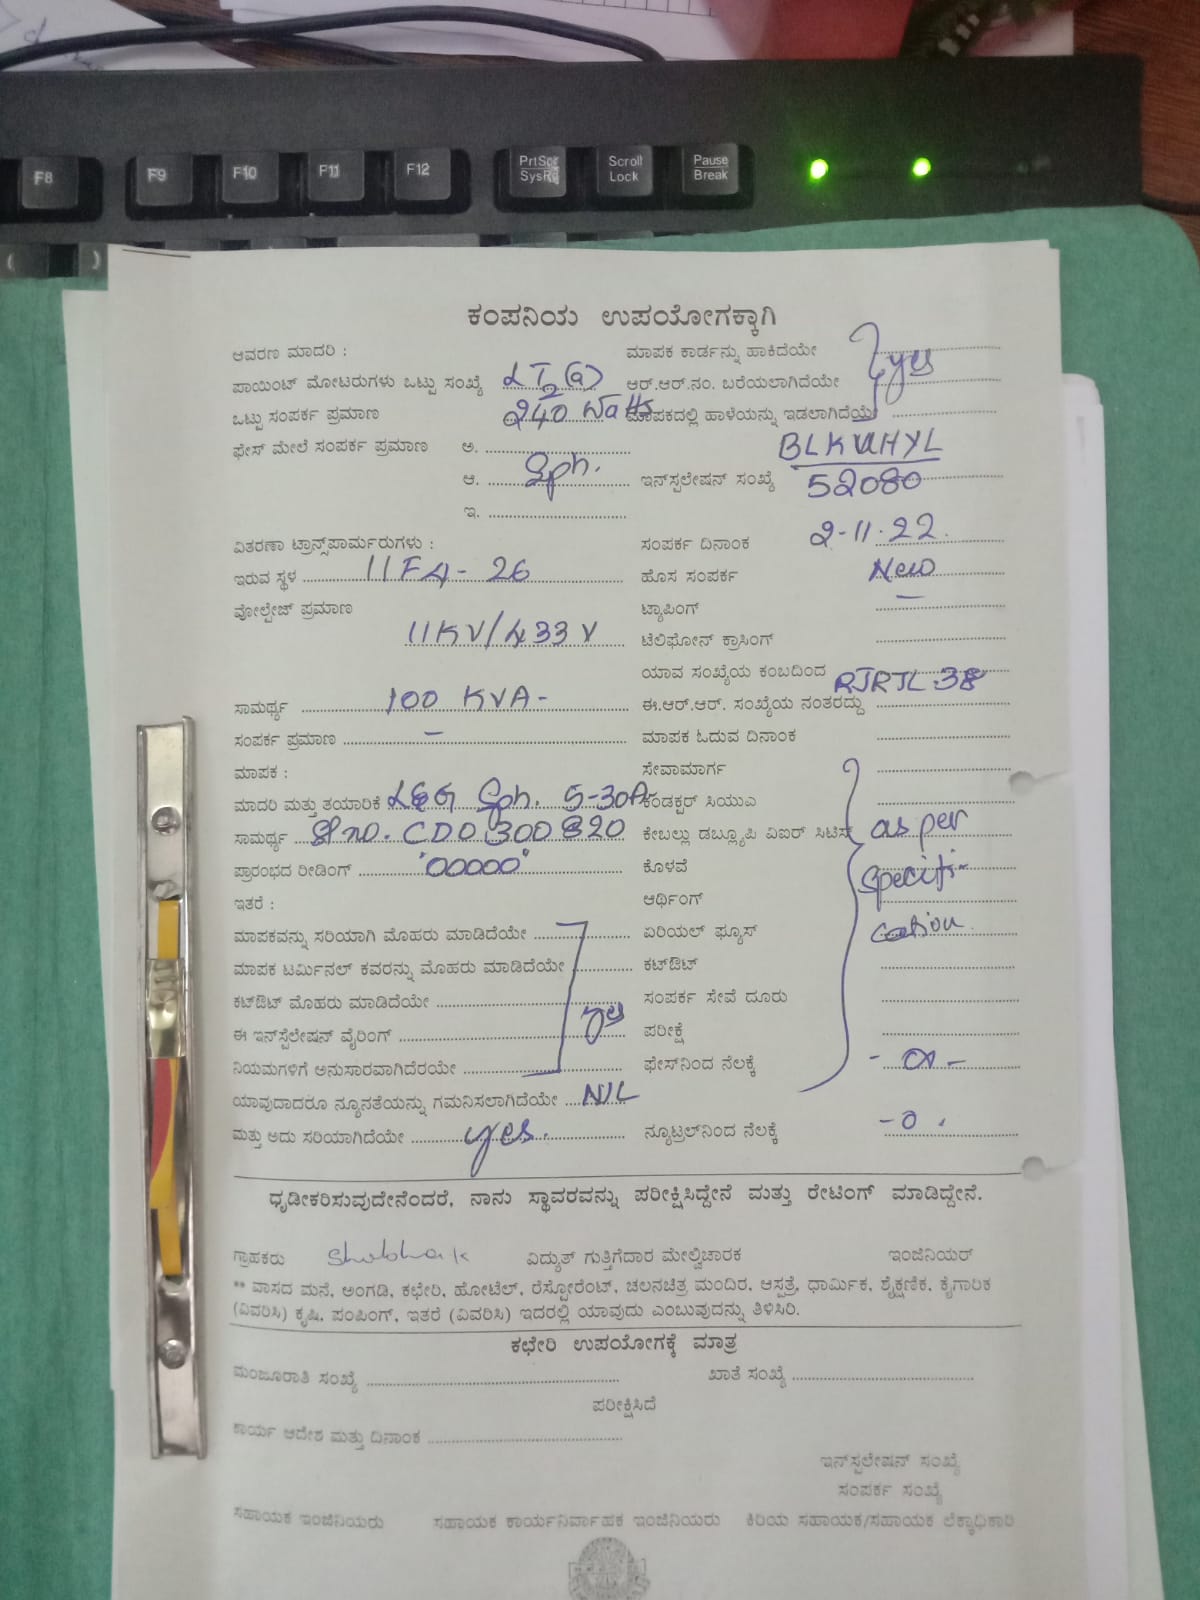 F8 F9 F10 F11 F12 PrtScr SysRq Scroll Lock Pause Break
ಕಂಪನಿಯ ಉಪಯೋಗಕ್ಕಾಗಿ
ಆವರಣ ಮಾದರಿ : ಮಾಪಕ ಕಾರ್ಡನ್ನು ಹಾಕಿದೆಯೇ
ಪಾಯಿಂಟ್ ಮೋಟರುಗಳು ಒಟ್ಟು ಸಂಖ್ಯೆ LT2(a) ಆರ್.ಆರ್.ನಂ. ಬರೆಯಲಾಗಿದೆಯೇ yes
ಒಟ್ಟು ಸಂಪರ್ಕ ಪ್ರಮಾಣ 240 Watts ಮಾಪಕದಲ್ಲಿ ಹಾಳೆಯನ್ನು ಇಡಲಾಗಿದೆಯೇ
ಫೇಸ್ ಮೇಲೆ ಸಂಪರ್ಕ ಪ್ರಮಾಣ ಅ. BLKVHYL
ಆ. Sph. ಇನ್‌ಸ್ಟಲೇಷನ್ ಸಂಖ್ಯೆ 52080
ಇ.
ವಿತರಣಾ ಟ್ರಾನ್ಸ್‌ಪಾರ್ಮರುಗಳು : ಸಂಪರ್ಕ ದಿನಾಂಕ 2-11-22
ಇರುವ ಸ್ಥಳ 11F4-26 ಹೊಸ ಸಂಪರ್ಕ New
ವೋಲ್ಟೇಜ್ ಪ್ರಮಾಣ ಟ್ಯಾಪಿಂಗ್ –
11KV/433V ಟೆಲಿಫೋನ್ ಕ್ರಾಸಿಂಗ್
ಯಾವ ಸಂಖ್ಯೆಯ ಕಂಬದಿಂದ RJRJL-38
ಸಾಮರ್ಥ್ಯ 100 KVA- ಈ.ಆರ್.ಆರ್. ಸಂಖ್ಯೆಯ ನಂತರದ್ದು
ಸಂಪರ್ಕ ಪ್ರಮಾಣ – ಮಾಪಕ ಓದುವ ದಿನಾಂಕ
ಮಾಪಕ : ಸೇವಾಮಾರ್ಗ
ಮಾದರಿ ಮತ್ತು ತಯಾರಿಕೆ L&G Sph. 5-30A ಕಂಡಕ್ಟರ್ ಸಿಯುಎ
ಸಾಮರ್ಥ್ಯ Sl no. CDO 300820 ಕೇಬಲ್ಲು ಡಬ್ಲ್ಯೂಪಿ ವಿಐರ್ ಸಿಟಿಸ್ as per
ಪ್ರಾರಂಭದ ರೀಡಿಂಗ್ '00000' ಕೊಳವೆ specifi-
ಇತರೆ : ಆರ್ಥಿಂಗ್
ಮಾಪಕವನ್ನು ಸರಿಯಾಗಿ ಮೊಹರು ಮಾಡಿದೆಯೇ ಏರಿಯಲ್ ಫ್ಯೂಸ್ cation
ಮಾಪಕ ಟರ್ಮಿನಲ್ ಕವರನ್ನು ಮೊಹರು ಮಾಡಿದೆಯೇ ಕಟ್‌ಔಟ್
ಕಟ್‌ಔಟ್ ಮೊಹರು ಮಾಡಿದೆಯೇ yes ಸಂಪರ್ಕ ಸೇವೆ ದೂರು
ಈ ಇನ್‌ಸ್ಟೆಲೇಷನ್ ವೈರಿಂಗ್ ಪರೀಕ್ಷೆ
ನಿಯಮಗಳಿಗೆ ಅನುಸಾರವಾಗಿದೆರಯೇ ಫೇಸ್‌ನಿಂದ ನೆಲಕ್ಕೆ
ಯಾವುದಾದರೂ ನ್ಯೂನತೆಯನ್ನು ಗಮನಿಸಲಾಗಿದೆಯೇ NIL
ಮತ್ತು ಅದು ಸರಿಯಾಗಿದೆಯೇ yes. ನ್ಯೂಟ್ರಲ್‌ನಿಂದ ನೆಲಕ್ಕೆ -0.
ಧೃಡೀಕರಿಸುವುದೇನೆಂದರೆ, ನಾನು ಸ್ಥಾವರವನ್ನು ಪರೀಕ್ಷಿಸಿದ್ದೇನೆ ಮತ್ತು ರೇಟಿಂಗ್ ಮಾಡಿದ್ದೇನೆ.
ಗ್ರಾಹಕರು ವಿದ್ಯುತ್ ಗುತ್ತಿಗೆದಾರ ಮೇಲ್ವಿಚಾರಕ ಇಂಜಿನಿಯರ್
** ವಾಸದ ಮನೆ, ಅಂಗಡಿ, ಕಛೇರಿ, ಹೋಟೆಲ್, ರೆಸ್ಟೋರೆಂಟ್, ಚಲನಚಿತ್ರ ಮಂದಿರ, ಆಸ್ಪತ್ರೆ, ಧಾರ್ಮಿಕ, ಶೈಕ್ಷಣಿಕ, ಕೈಗಾರಿಕ
(ವಿವರಿಸಿ) ಕೃಷಿ, ಪಂಪಿಂಗ್, ಇತರೆ (ವಿವರಿಸಿ) ಇದರಲ್ಲಿ ಯಾವುದು ಎಂಬುವುದನ್ನು ತಿಳಿಸಿರಿ.
ಕಛೇರಿ ಉಪಯೋಗಕ್ಕೆ ಮಾತ್ರ
ಮಂಜೂರಾತಿ ಸಂಖ್ಯೆ ಖಾತೆ ಸಂಖ್ಯೆ
ಪರೀಕ್ಷಿಸಿದೆ
ಕಾರ್ಯ ಆದೇಶ ಮತ್ತು ದಿನಾಂಕ
ಇನ್‌ಸ್ಟಲೇಷನ್ ಸಂಖ್ಯೆ
ಸಂಪರ್ಕ ಸಂಖ್ಯೆ
ಸಹಾಯಕ ಇಂಜಿನಿಯರು ಸಹಾಯಕ ಕಾರ್ಯನಿರ್ವಾಹಕ ಇಂಜಿನಿಯರು ಕಿರಿಯ ಸಹಾಯಕ/ಸಹಾಯಕ ಲೆಕ್ಕಾಧಿಕಾರಿ